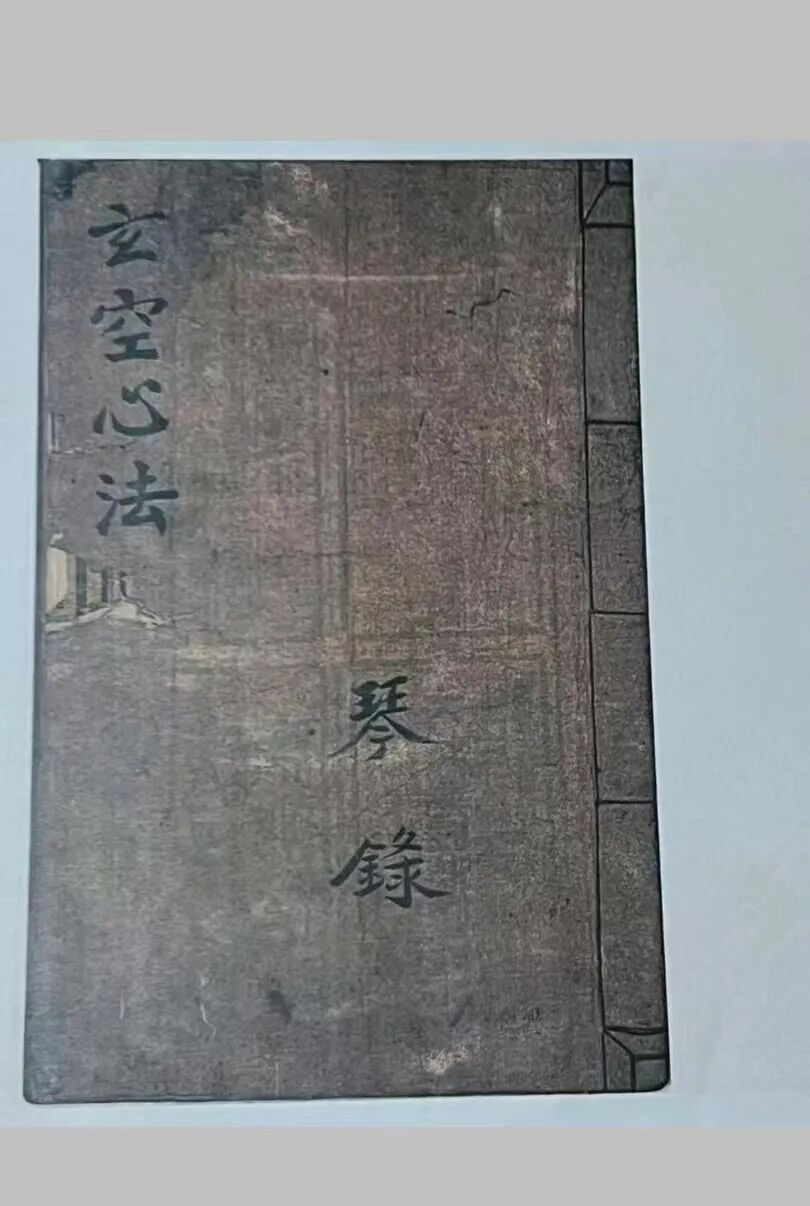 玄空心法
琴錄